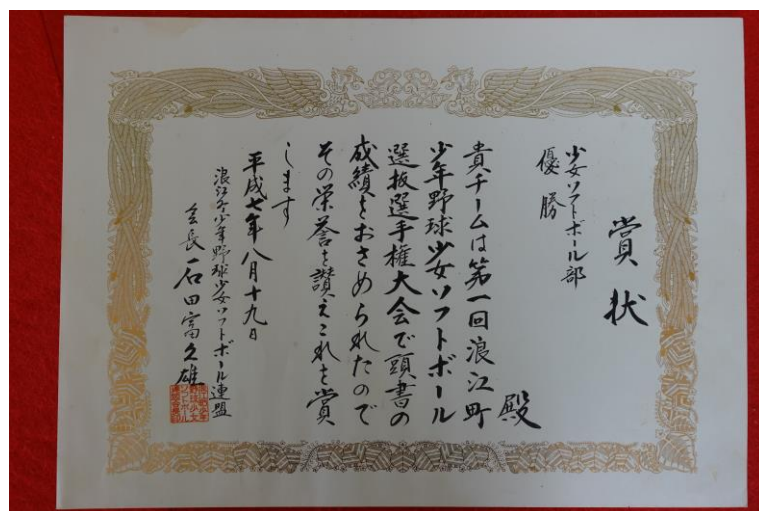 賞状
少女ソフトボール部
優勝
殿
貴チームは第一回浪江町
少年野球少女ソフトボール
選抜選手権大会で頭書の
成績をおさめられたので
その栄誉を讃えこれを賞
します
平成七年八月十九日
浪江町少年野球少女ソフトボール連盟
会長 石田富久雄